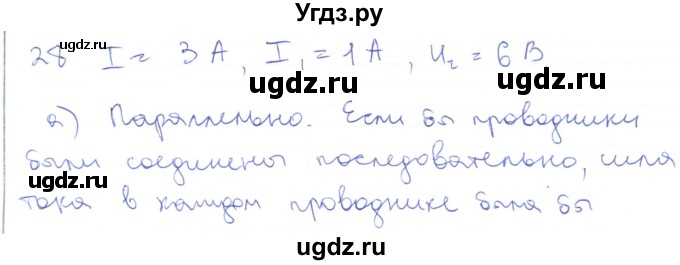 Угдз.ру
ugdz.ru
28 I = 3 А, I₁ = 1 А, U₂ = 6 В
ugdz.ru
ugdz.ru
а) Параллельно. Если бы проводники
были соединены последовательно, сила
ugdz.ru
тока в каждом проводнике была бы
ugdz.ru
ugdz.ru